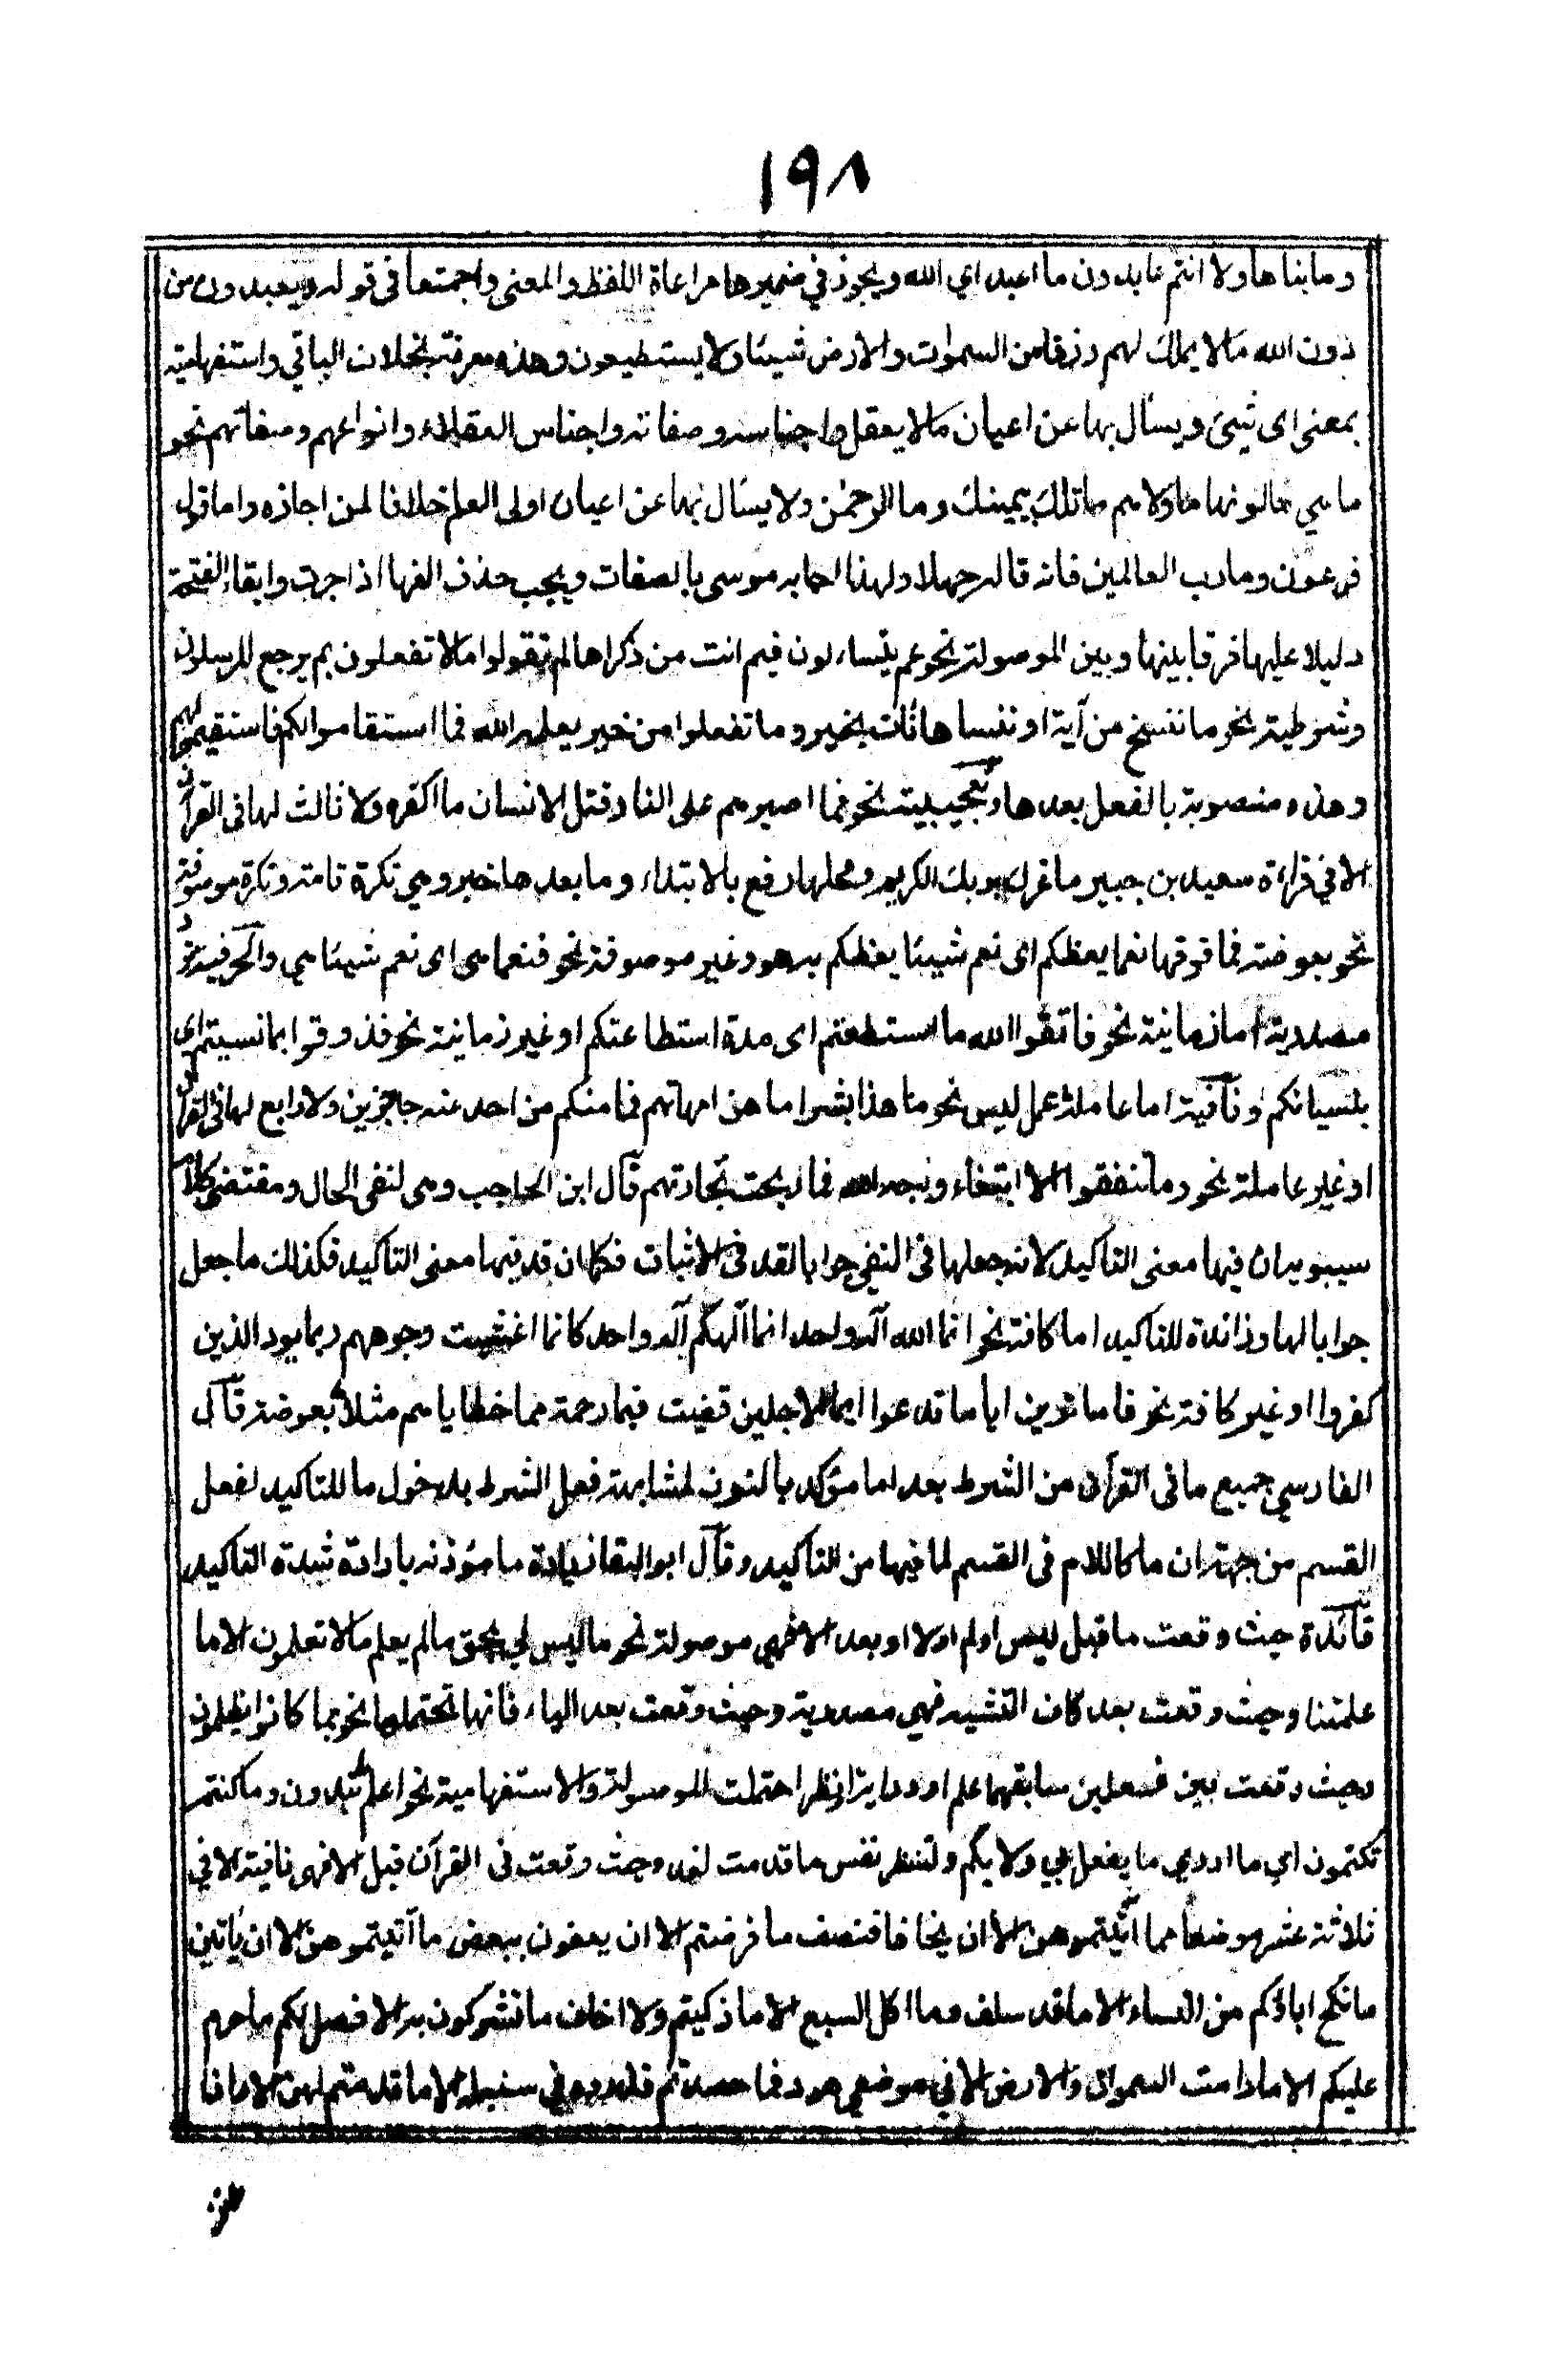 ١٩٨
وما بناها ولا انتم عابدون ما اعبد اي الله ويجوز في ضميرها مراعاة اللفظ والمعنى واجتمعا في قوله ويعبدون من
دون الله مالا يملك لهم رزقا من السموات والارض شيئا ولا يستطيعون وهذه معرفة بخلاف الباقي واستفهامية
بمعنى اى شيئ ويسأل بها عن اعيان مالا يعقل واجناسه وصفاته واجناس العقلاء وانواعهم وصفاتهم نحو
ما هي مالونها ما ولاهم ما تلك بيمينك وما الرحمٰن ولا يسأل بها عن اعيان اولى العلم خلافا لمن اجازه واما قول
فرعون وما رب العالمين فانه قاله جهلا ولهذا اجابه موسى بالصفات ويجب حذف الفها اذا جرت وابقاء الفتحة
دليلا عليها فرقا بينها وبين الموصولة نحو عم يتساءلون فيم انت من ذكراها لم تقولوا مالا تفعلون بم يرجع المرسلون
وشرطية نحو ما ننسخ من آية او ننساها نأت بخير وما تفعلوا من خير يعلمه الله فما استقاموا لكم فاستقيموا لهم
وهذه منصوبة بالفعل بعدها وتعجيبية نحو فما اصبرهم على النار قتل الانسان ما اكفره ولا ثالث لهما فى القرآن
الا في قراءة سعيد بن جبير ما غرك بربك الكريم ومحلها رفع بالابتداء وما بعدها خبر وهي نكرة تامة ونكرة موصوفة
نحو بعوضة فما فوقها نعما يعظكم اى نعم شيئا يعظكم به وغير موصوفة نحو فنعما هى اى نعم شيئا هي والحرفية ترد
مصدرية اما زمانية نحو فاتقوا الله ما استطعتم اى مدة استطاعتكم او غير زمانية نحو فذوقوا بما نسيتم اى
بنسيانكم او نافية اما عاملة عمل ليس نحو ما هذا بشرا ما هن امهاتهم فما منكم من احد عنه حاجزين ولا رابع لها فى القرآن
او غير عاملة نحو وما تنفقوا الا ابتغاء وجه الله فما ربحت تجارتهم قال ابن الحاجب وهى لنفى الحال ومقتضى كلام
سيبويه ان فيها معنى التاكيد لانه جعلها فى النفي جوابا لقد فى الاثبات فكما ان قد فيها معنى التاكيد فكذلك ما جعل
جوابا لها وزائدة للتاكيد اما كافة نحو انما الله آله واحد انما آلهكم آله واحد كانما اغشيت وجوههم ربما يود الذين
كفروا او غير كافة نحو فاما ترين ايا ما تدعوا ايما الاجلين قضيت فبما رحمة مما خطاياهم مثلا ما بعوضة قال
الفارسي جميع ما فى القرآن من الشرط بعد اما مؤكد بالنون لمشابهة فعل الشرط بدخول ما للتاكيد لفعل
القسم من جهة ان ما كاللام فى القسم لما فيها من التاكيد وقال ابو البقا زيادة ما مؤذنه بارادة شدة التاكيد
فائدة حيث وقعت ما قبل ليس اولم اولا او بعد الا فهي موصولة نحو ما ليس لي بحق ما لم يعلم مالا تعلمون الا ما
علمتنا وحيث وقعت بعد كاف التشبيه فهي مصدرية وحيث وقعت بعد الباء فانها تحتملهما نحو بما كانوا يظلمون
وحيث وقعت بين فعلين سابقهما علم او دراية او نظر احتملت الموصولة والاستفهامية نحو اعلم ما تبدون وما كنتم
تكتمون اي ما ادري ما يفعل بي ولا بكم ولتنظر نفس ما قدمت لغد وحيث وقعت فى القرآن قبل الا فهى نافية الا في
ثلاثة عشر موضعا مما آتيتموهن الا ان يخافا فنصف ما فرضتم الا ان يعفون ببعض ما آتيتموهن الا ان ياتين
ما نكح اباؤكم من النساء الا ما قد سلف وما اكل السبع الا ما ذكيتم ولا اخاف ما تشركون به الا فصل لكم ما حرم
عليكم الا ما دامت السموات والارض الا في موضعي هود فما حصدتم فذروه في سنبله الا ما قدمتم لهن الا واذا